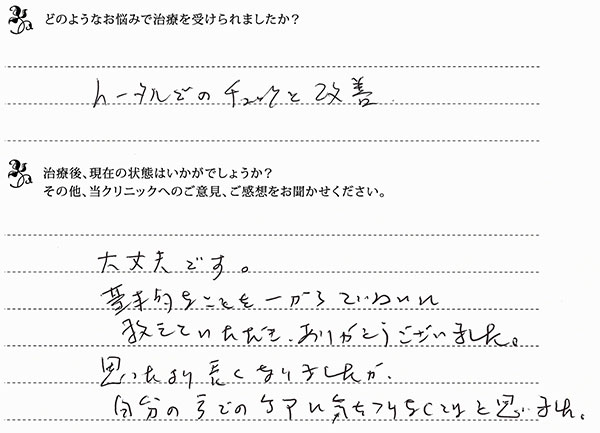 どのようなお悩みで治療を受けられましたか?
トータルでのチェックと改善
治療後、現在の状態はいかがでしょうか?
その他、当クリニックへのご意見、ご感想をお聞かせください。
大丈夫です。
基本的なことを一からていねいに
教えていただき、ありがとうございました。
思ったより長くなりましたが、
自分の手でのケアに気をつけなくてはと思いました。